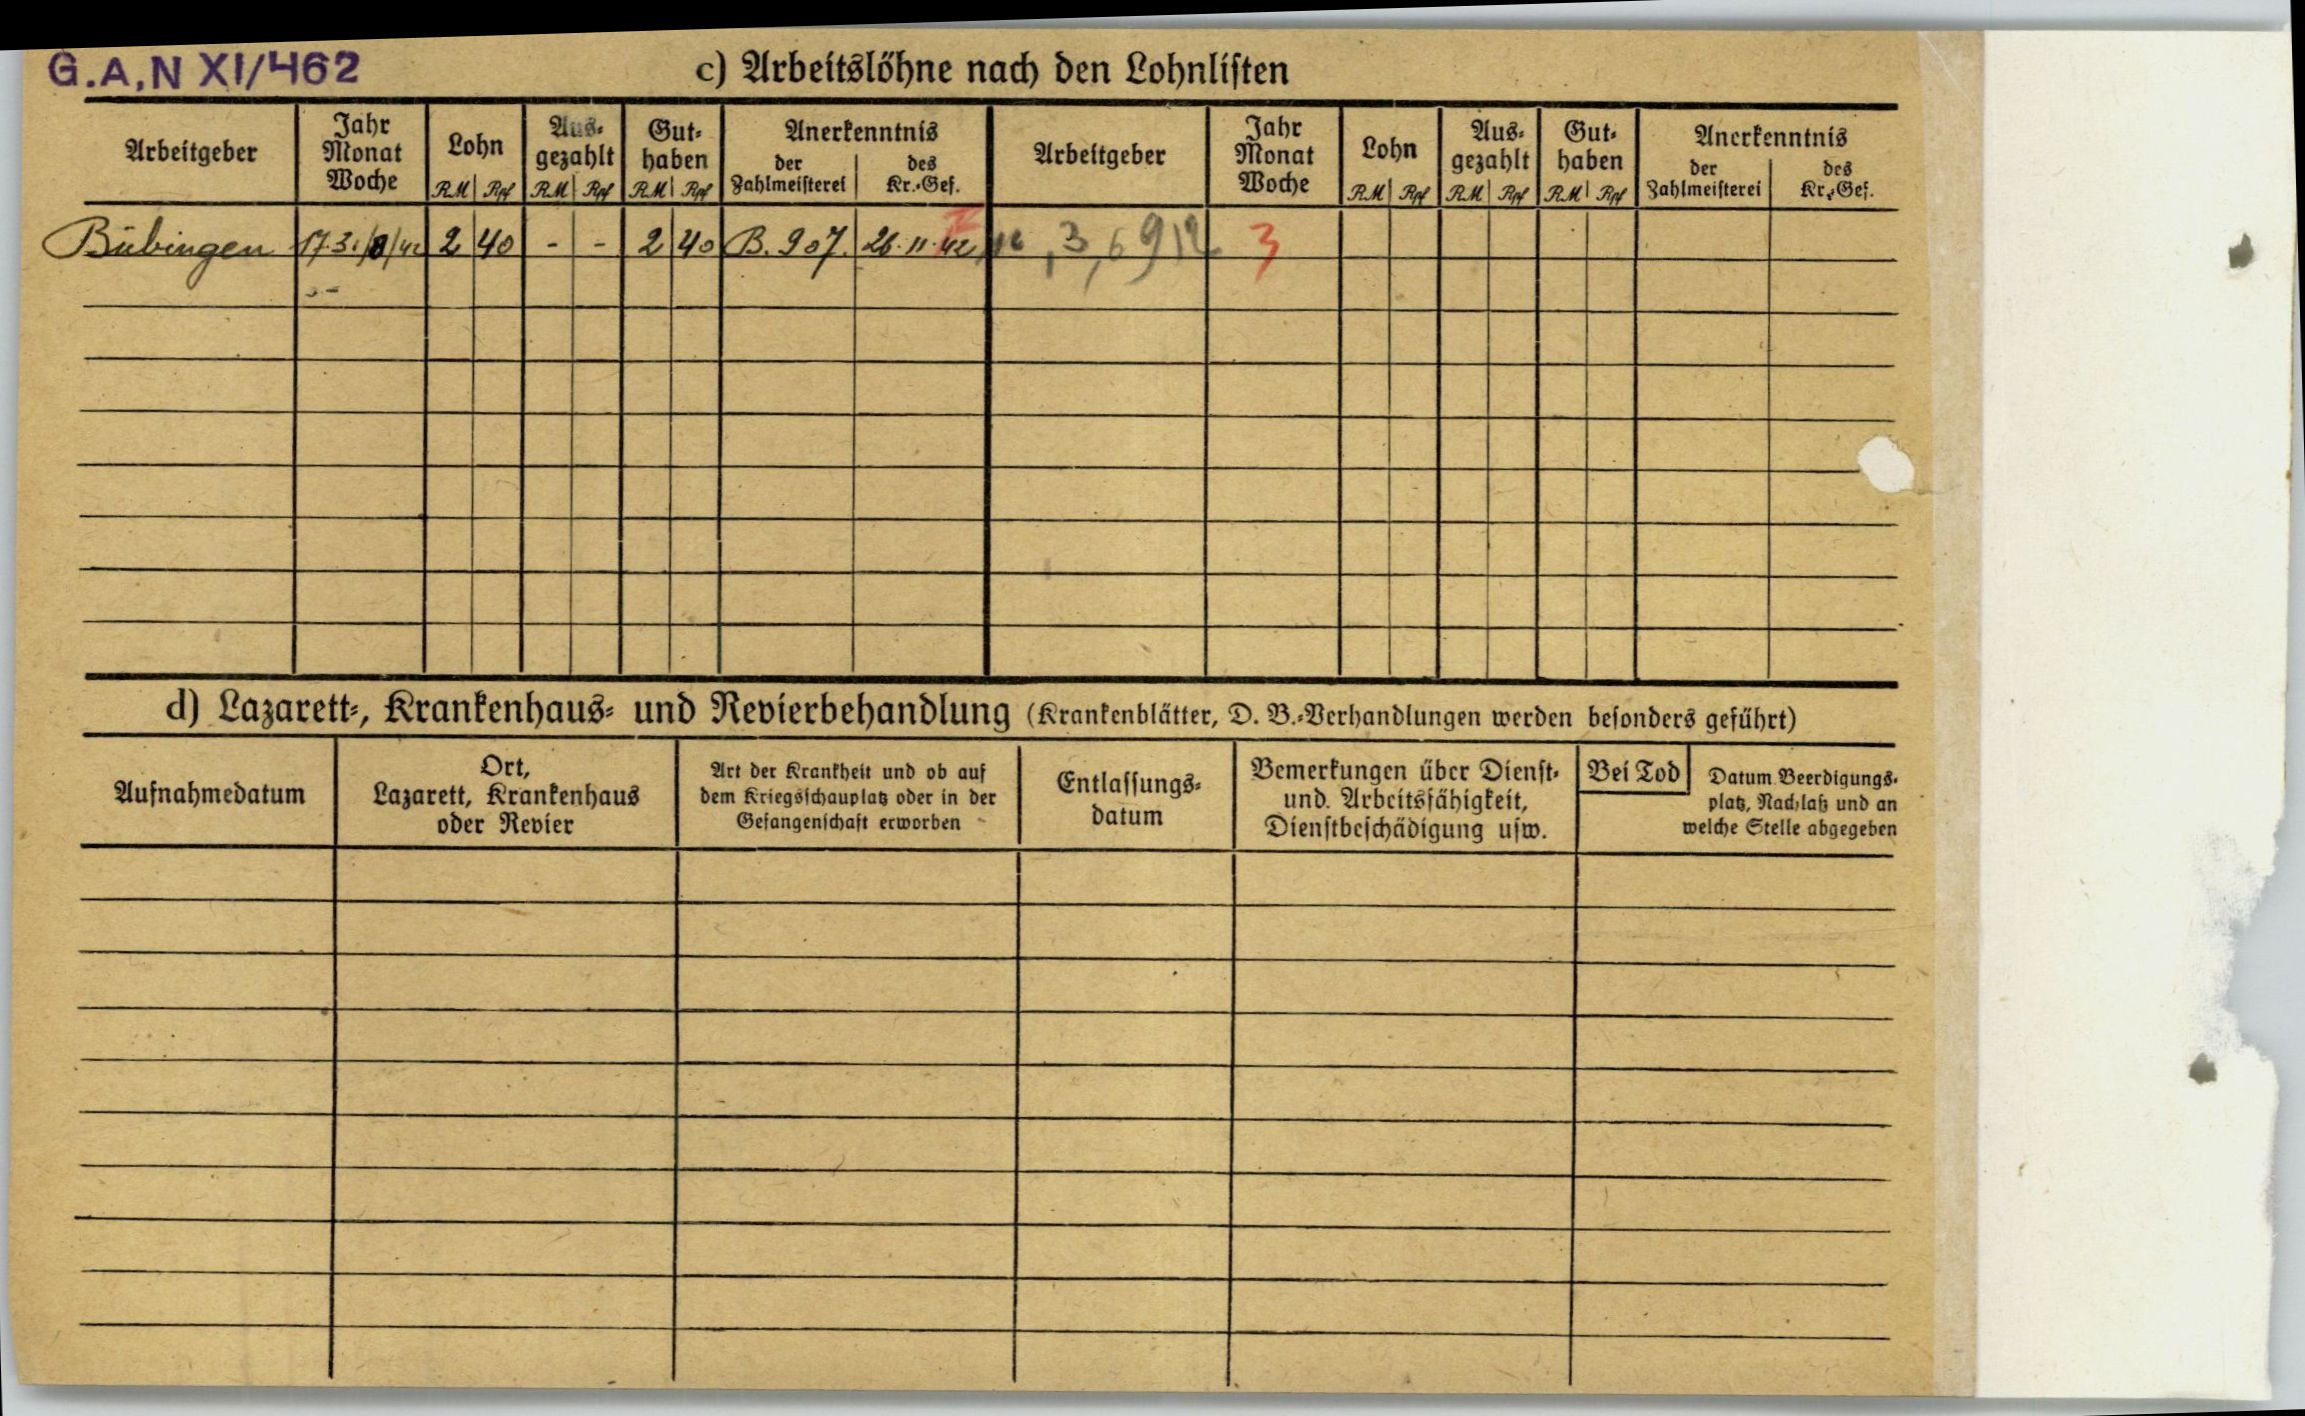 G.A,N XI/462
c) Arbeitslöhne nach den Lohnlisten
Arbeitgeber Jahr Monat Woche Lohn RM Rpf Aus-gezahlt RM Rpf Gut-haben RM Rpf Anerkenntnis der Zahlmeisterei des Kr.-Gef. Arbeitgeber Jahr Monat Woche Lohn RM Rpf Aus-gezahlt RM Rpf Gut-haben RM Rpf Anerkenntnis der Zahlmeisterei des Kr.-Gef.
Bübingen 17.31/8/42 2 40 - - 2 40 B. 907. 26.11.42 3
d) Lazarett-, Krankenhaus- und Revierbehandlung (Krankenblätter, D. B.-Verhandlungen werden besonders geführt)
Aufnahmedatum
Ort,
Lazarett, Krankenhaus
oder Revier
Art der Krankheit und ob auf
dem Kriegsschauplatz oder in der
Gefangenschaft erworben
Entlassungs-
datum
Bemerkungen über Dienst-
und Arbeitsfähigkeit,
Dienstbeschädigung usw.
Bei Tod
Datum Beerdigungs-
platz, Nachlaß und an
welche Stelle abgegeben